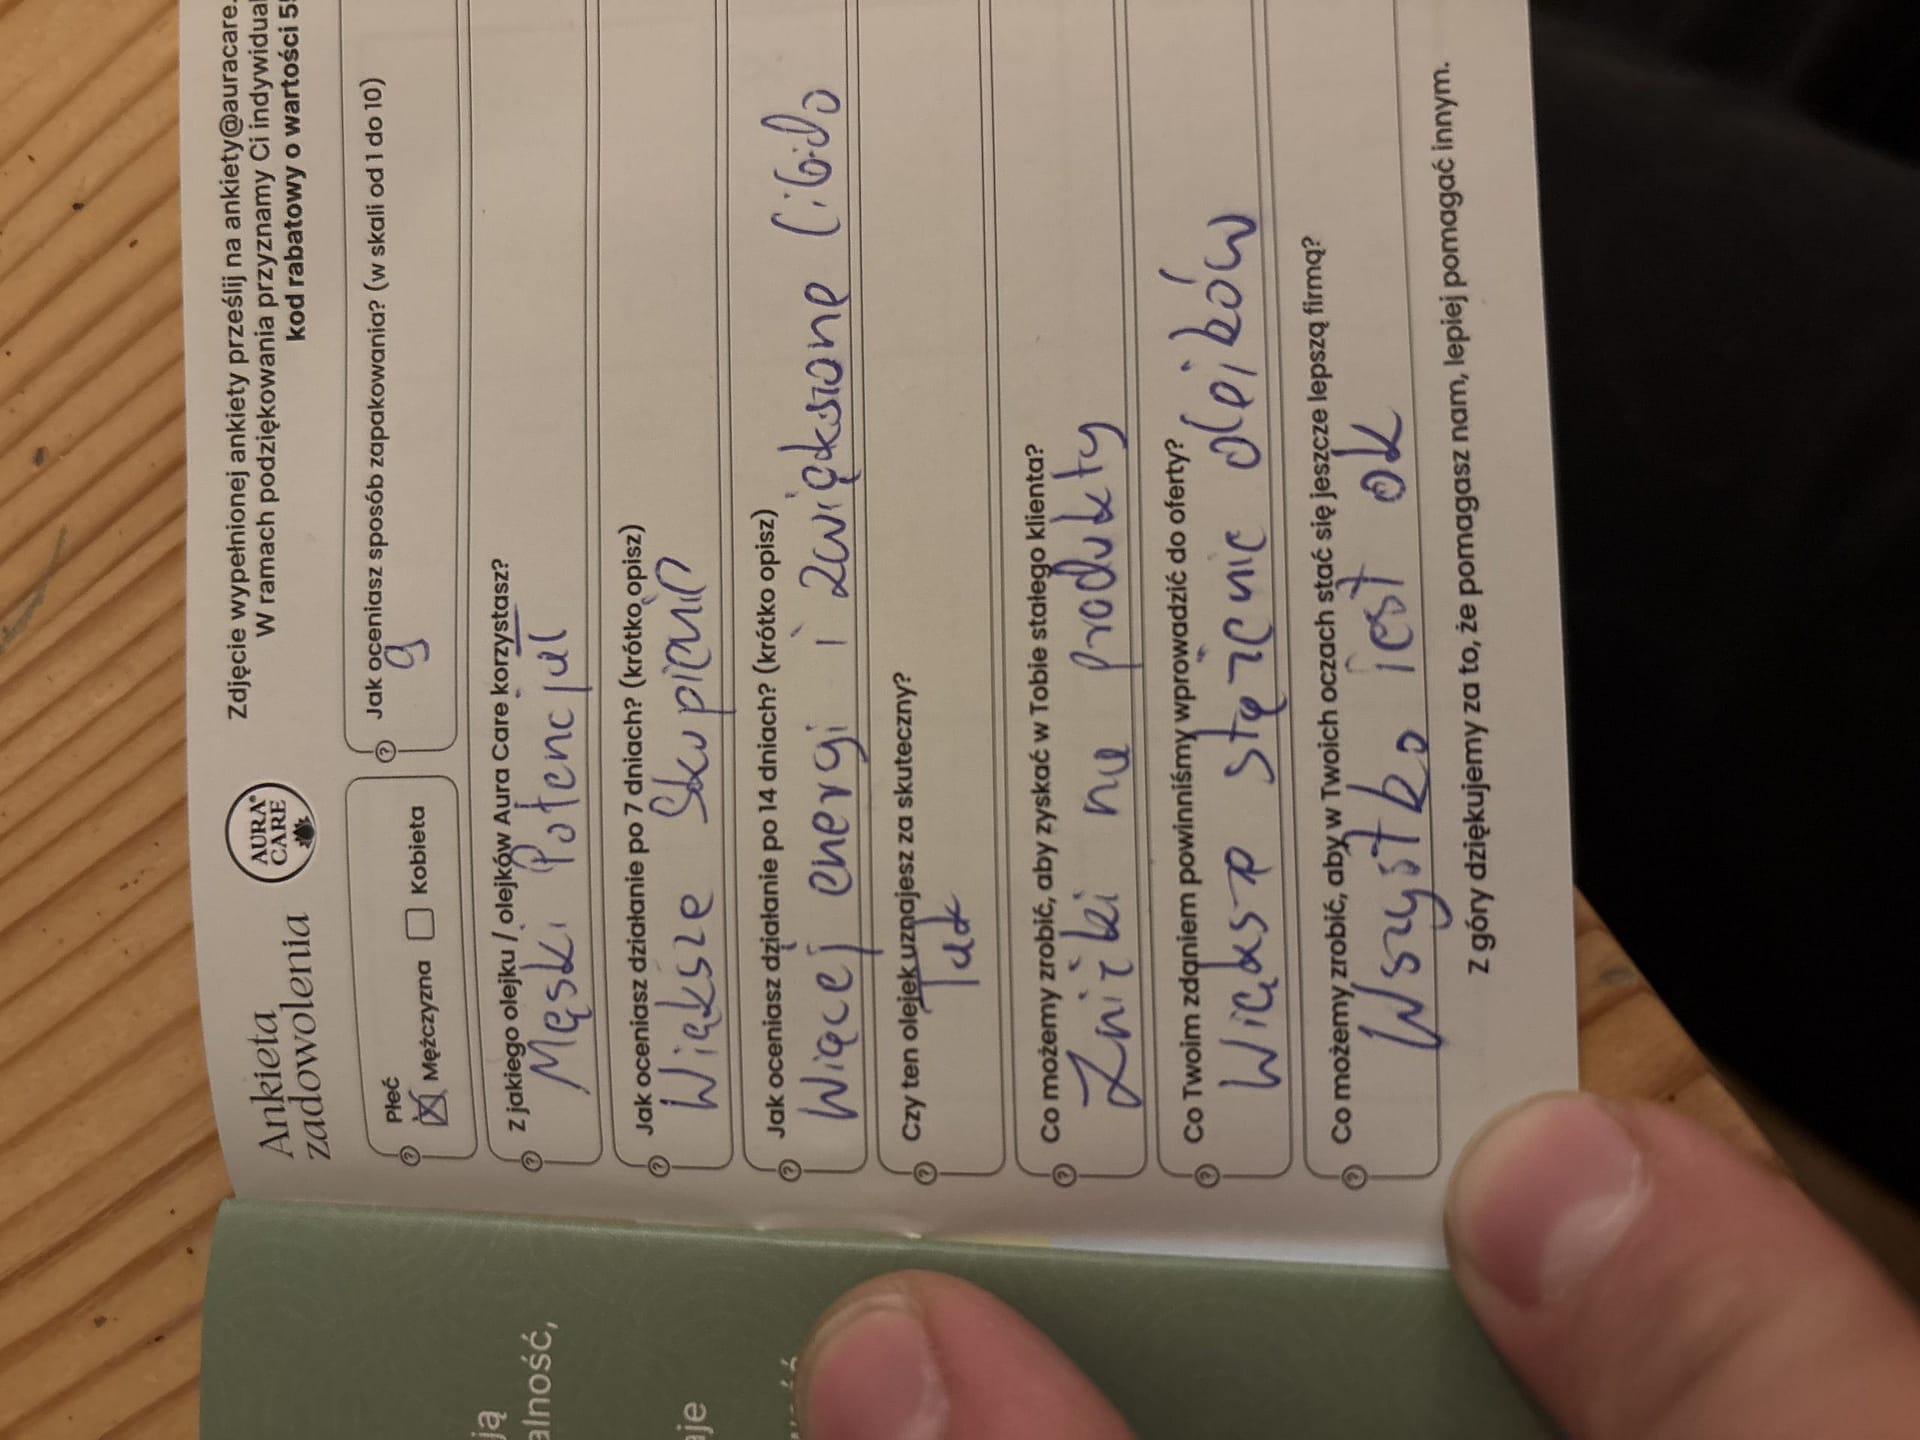 Ankieta
zadowolenia
AURA®
CARE
Zdjęcie wypełnionej ankiety prześlij na ankiety@auracare.
W ramach podziękowania przyznamy Ci indywidual
kod rabatowy o wartości 5
Płeć
Mężczyzna Kobieta
Jak oceniasz sposób zapakowania? (w skali od 1 do 10)
9
Z jakiego olejku / olejków Aura Care korzystasz?
Męski Potencjal
Jak oceniasz działanie po 7 dniach? (krótko opisz)
Większe Skupienie
Jak oceniasz działanie po 14 dniach? (krótko opisz)
Więcej energi i zwiększone libido
Czy ten olejek uznajesz za skuteczny?
Tak
Co możemy zrobić, aby zyskać w Tobie stałego klienta?
Zniżki na produkty
Co Twoim zdaniem powinniśmy wprowadzić do oferty?
Większe stężenie olejków
Co możemy zrobić, aby w Twoich oczach stać się jeszcze lepszą firmą?
Wszystko jest ok
Z góry dziękujemy za to, że pomagasz nam, lepiej pomagać innym.
ją
alność,